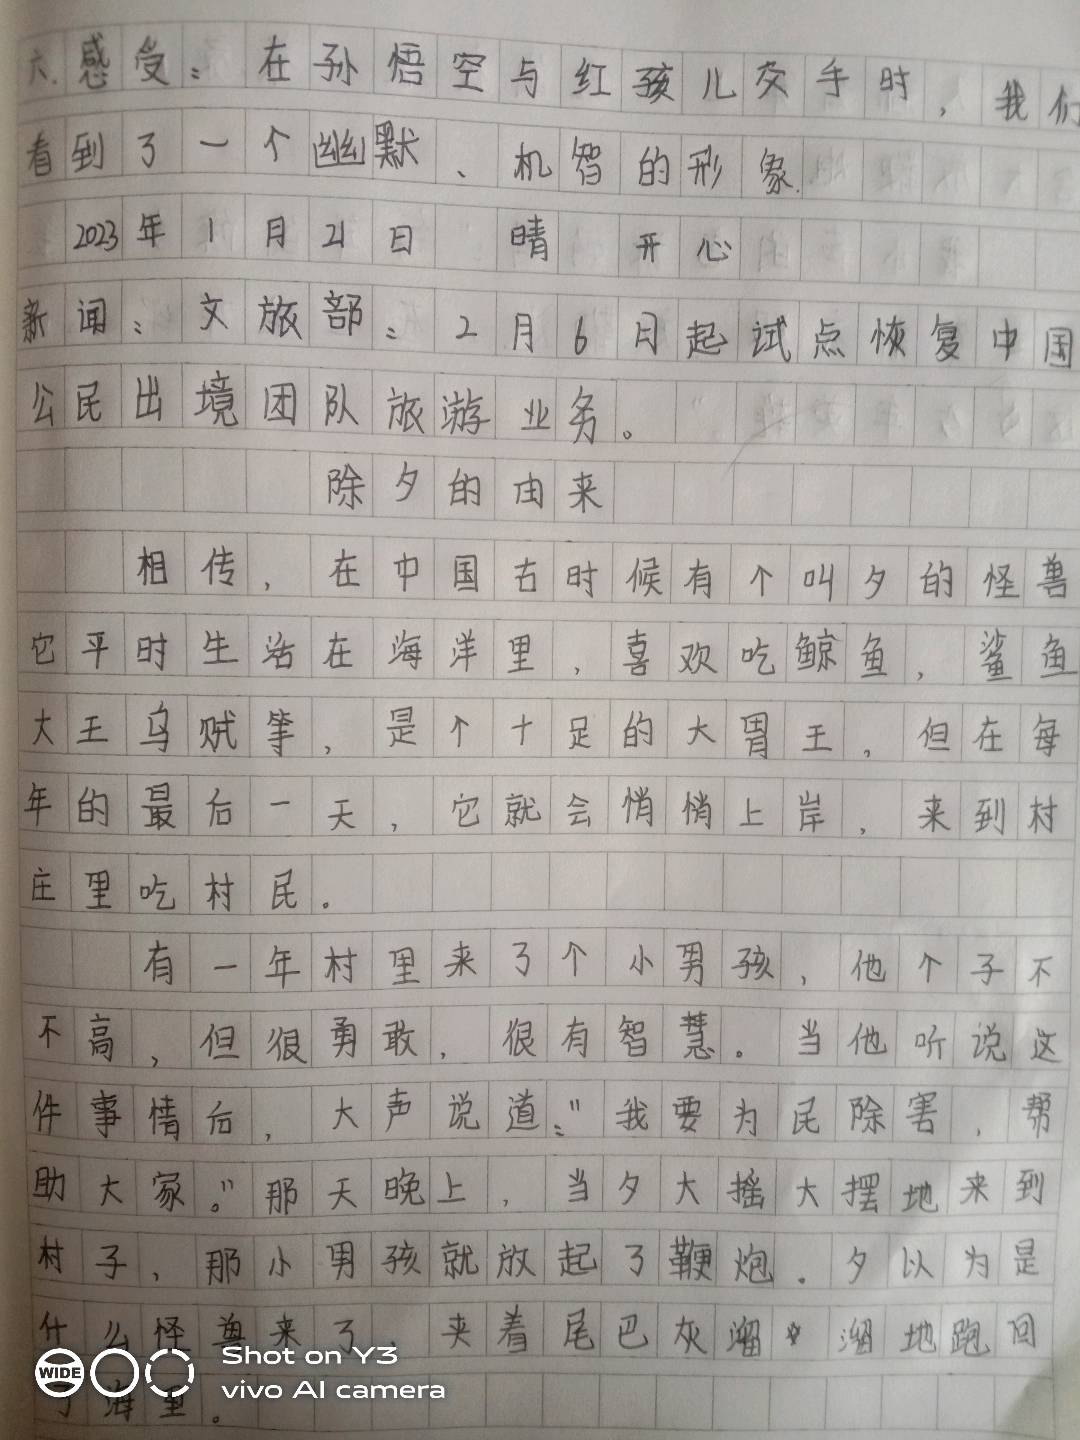 六、感受：在孙悟空与红孩儿交手时，我们
看到了一个幽默、机智的形象.
2023年1月21日 晴 开心
新闻：文旅部：2月6日起试点恢复中国
公民出境团队旅游业务。
除夕的由来
相传，在中国古时候有个叫夕的怪兽
它平时生活在海洋里，喜欢吃鲸鱼，鲨鱼
大王乌贼等，是个十足的大胃王，但在每
年的最后一天，它就会悄悄上岸，来到村
庄里吃村民.
有一年村里来了个小男孩，他个子不
不高，但很勇敢，很有智慧。当他听说这
件事情后，大声说道："我要为民除害，帮
助大家。"那天晚上，当夕大摇大摆地来到
村子，那小男孩就放起了鞭炮.夕以为是
什么怪兽来了，夹着尾巴灰溜溜地跑回
了海里。
WIDE
Shot on Y3
vivo AI camera